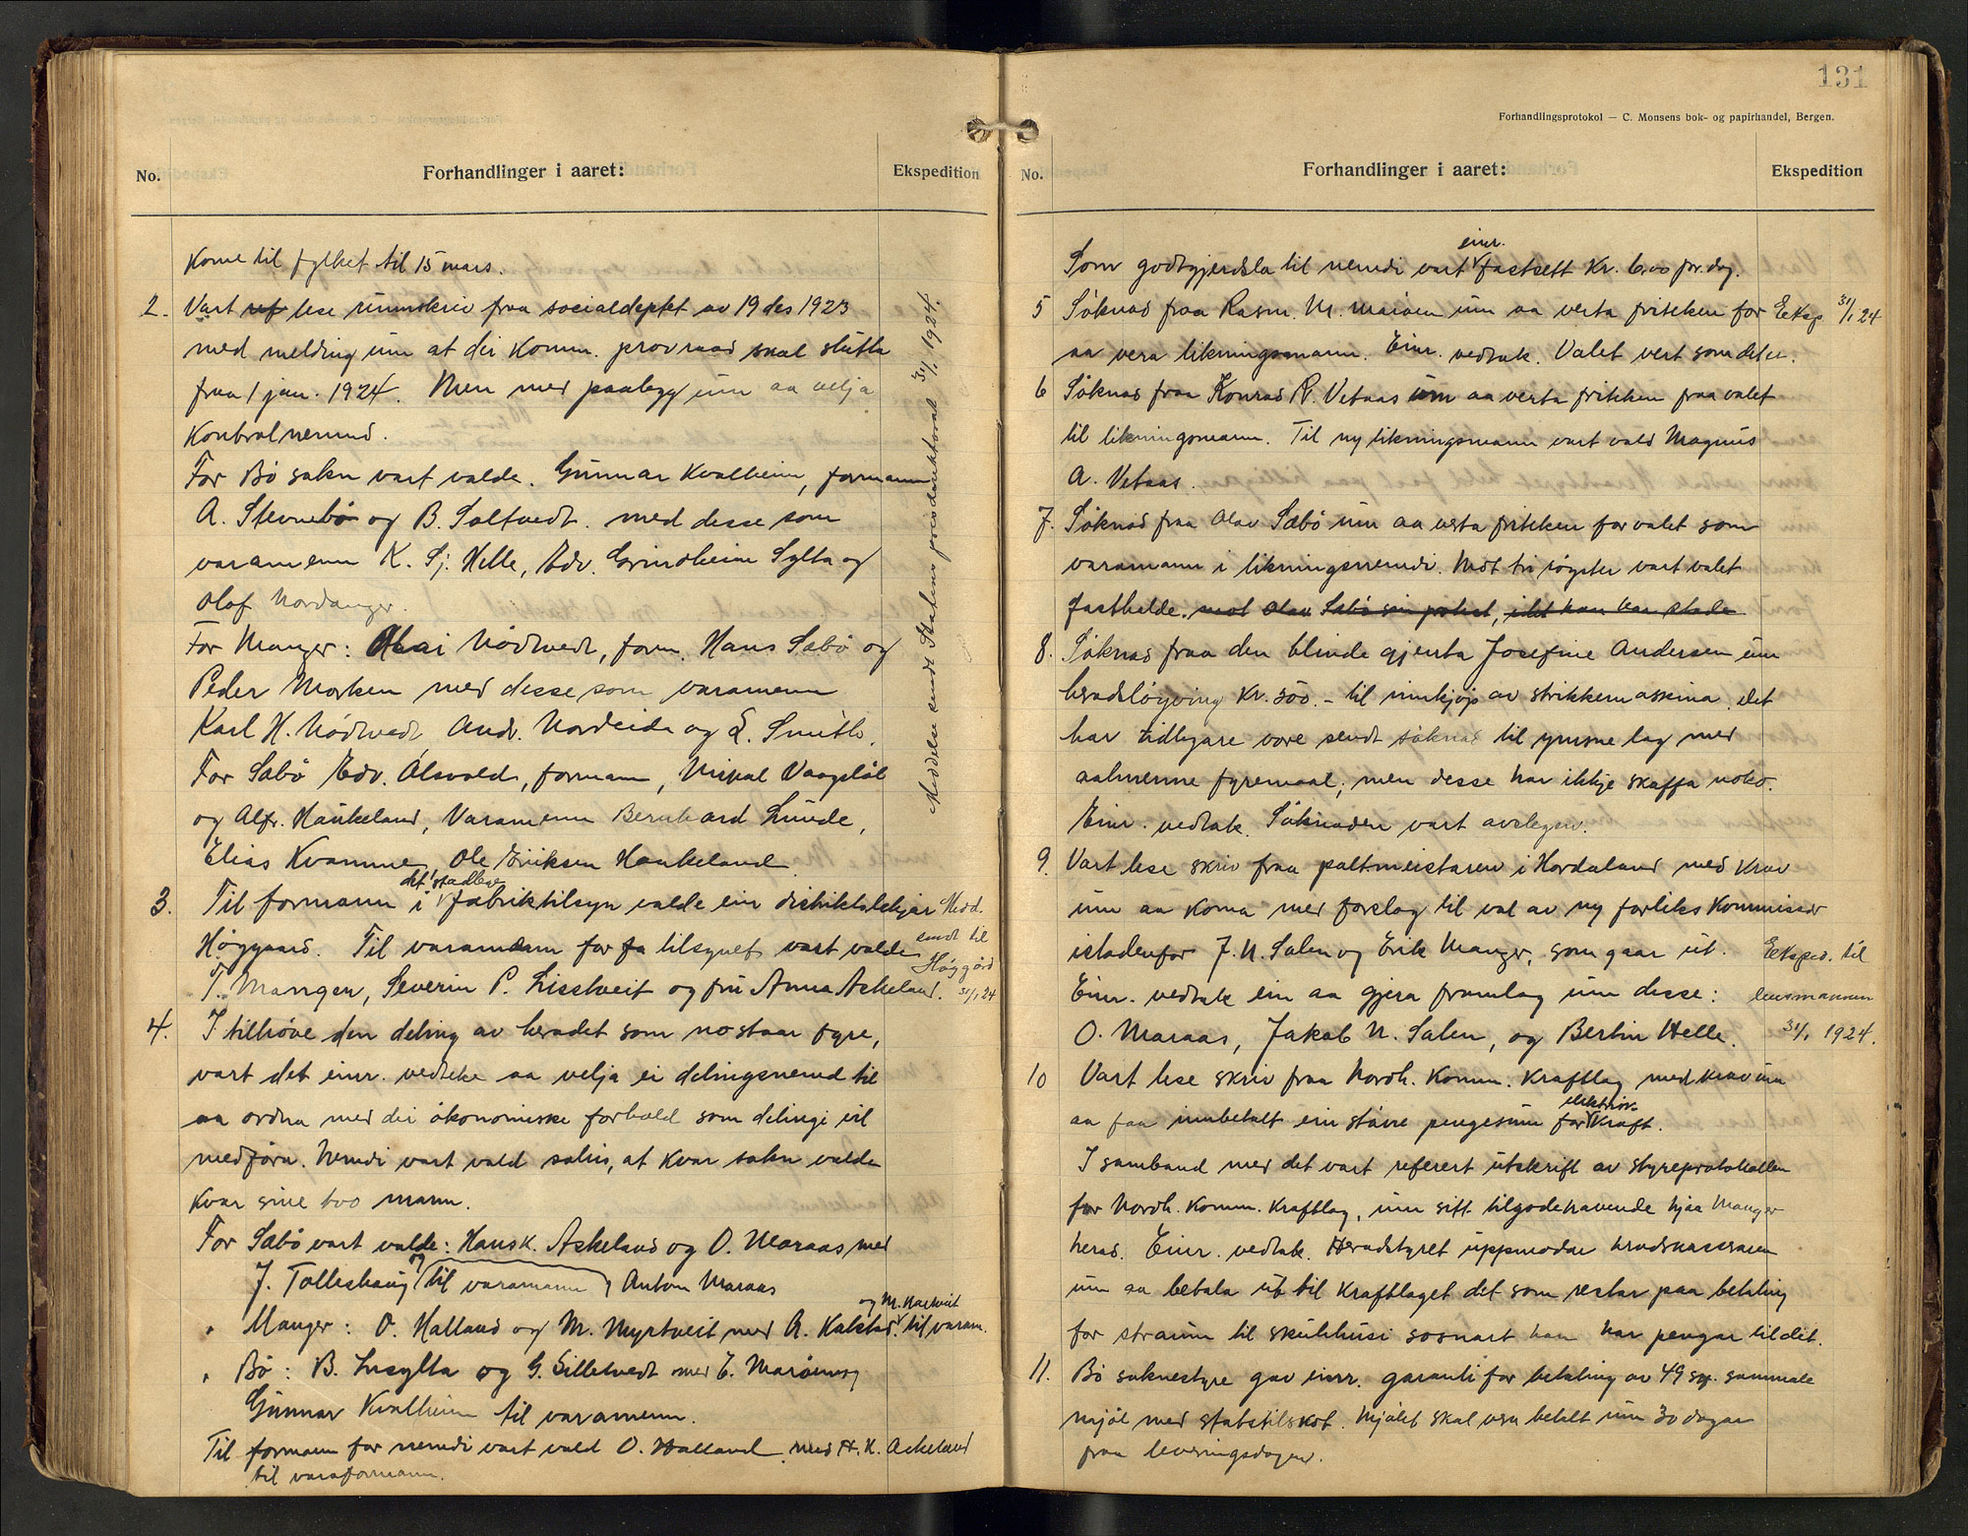 No.
Forhandlinger i aaret:
Ekspedition
Kome til fylket til 15 mars.
2. Vart ref lese runnskriv fraa socialdeptet av 19 des 1923
med melding um at dei Komm. provraad skal slutta
fraa 1 jan. 1924. Men med paalegg um aa velja
Kontrolnemnd.
For Bø sokn vart valde. Gunnar Kvalheim, formann
A. Stevnebø og B. Soltvedt. med desse som
varamenn K. Sj. Helle, Edv. Grindheim Sylta og
Olaf Nordanger.
For Manger: Olai Nødtvedt, form. Hans Sæbø og
Peder Morken med desse som varamenn
Karl H. Nødtvedt And. Nordeide og L. Smith.
For Sæbø Edv. Alsvold, formann, Mikal Vaagslöl
og Alfr. Haukeland, Varamenn Bernhard Lunde,
Elias Kvamme, Ole Eriksen Haukeland.
Meddelse sendt Statens provdirektorat 31/1 1924.
3. Til formann i det stadlege fabriktilsyn valde ein distriktslækjar
Høggaard. Til varamenn for fa tilsynet vart valde
T. Mangen, Severin P. Lisstveit og fru Anna Askeland.
Medd. sendt til Høggård 31/1 24
4. I tilhøve den deling av heradet som no staar fyre,
vart det einr. vedteke aa velja ei delingsnemnd til
aa ordna med dei økonomiske forhold som delingi vil
medføra. Nemdi vart vald soleis, at kvar sokn valde
kvar sine two mann.
For Sæbø vart valde: Hans K. Askeland og O. Maraas med
J. Tolleshaug og (til varamenn) Anton Maraas
" Manger: O. Halland og M. Myrtveit med A. Kalstad og M. Harkveit til varam.
" Bø: B. Insylta og G. Silletvedt med E. Marøen og
Gunnar Kvalheim til varamenn.
Til formann for nemdi vart vald O. Halland med H. K. Askeland
til varaformann.
131
Forhandlingsprotokol — C. Monsens bok- og papirhandel, Bergen.
No.
Forhandlinger i aaret:
Ekspedition
Som godtgjerdsla til nemdi vart einr. fastsett Kr. 6.00 pr. dag.
5 Søknad fraa Rasm. M. Marøen um aa verta fritekken for
aa vera likningsmann. Einr. vedtak. Valet vert som det er.
Eksp. 31/1 24
6 Søknad fraa Konrad R. Vetaas um aa verta fritekken fraa valet
til likningsmann. Til ny likningsmann vart vald Magnus
A. Vetaas.
7. Søknad fraa Olav Sæbø um aa verta fritekken for valet som
varamann i likningsnemdi. Mot tri røyster vart valet
fasthelde. mot Olav Sæbø sin protest, idet han bar stade
8. Søknad fraa den blinde gjenta Josefine Andersen um
heradsløyving Kr. 300.- til innkjøp av strikkemaskina. Det
har tidlegare vore sendt søknad til ymse lag med
aalmenne fyremaal; men desse har ikkje skaffa noko.
Einr. vedtak. Søknaden vart avslegen.
9. Vart lese skriv fraa paltmeistaren i Hordaland med krav
um aa koma med forslag til val av ny forlikskommisær
istadenfor J. N. Salen og Erik Manger, som gaar ut.
Einr. vedtak ein aa gjera framlag um desse:
O. Maraas, Jakob N. Salen, og Bertin Helle.
Eksped. til
lensmannen
31/1 1924.
10 Vart lese skriv fraa Nordh. Komm. Kraftlag med krav um
aa faa innbetalt ein større pengesum for elektrisk Kraft.
I samband med det vart referert utskrift av styreprotokollen
for Nordh. Komm. Kraftlag, um sitt tilgodehavende hjaa Manger
herad. Einr. vedtak. Heradstyret uppmodar heradskasseraren
um aa betala ut til Kraftlaget det som restar paa betaling
for straum til skulehusi sosnart han har pengar til det.
11. Bø soknestyre gav einr. garanti for betaling av 49 sammale
mjøl med statstilskot. Mjølet skal vera betalt um 30 dagar
fraa leveringsdagen.